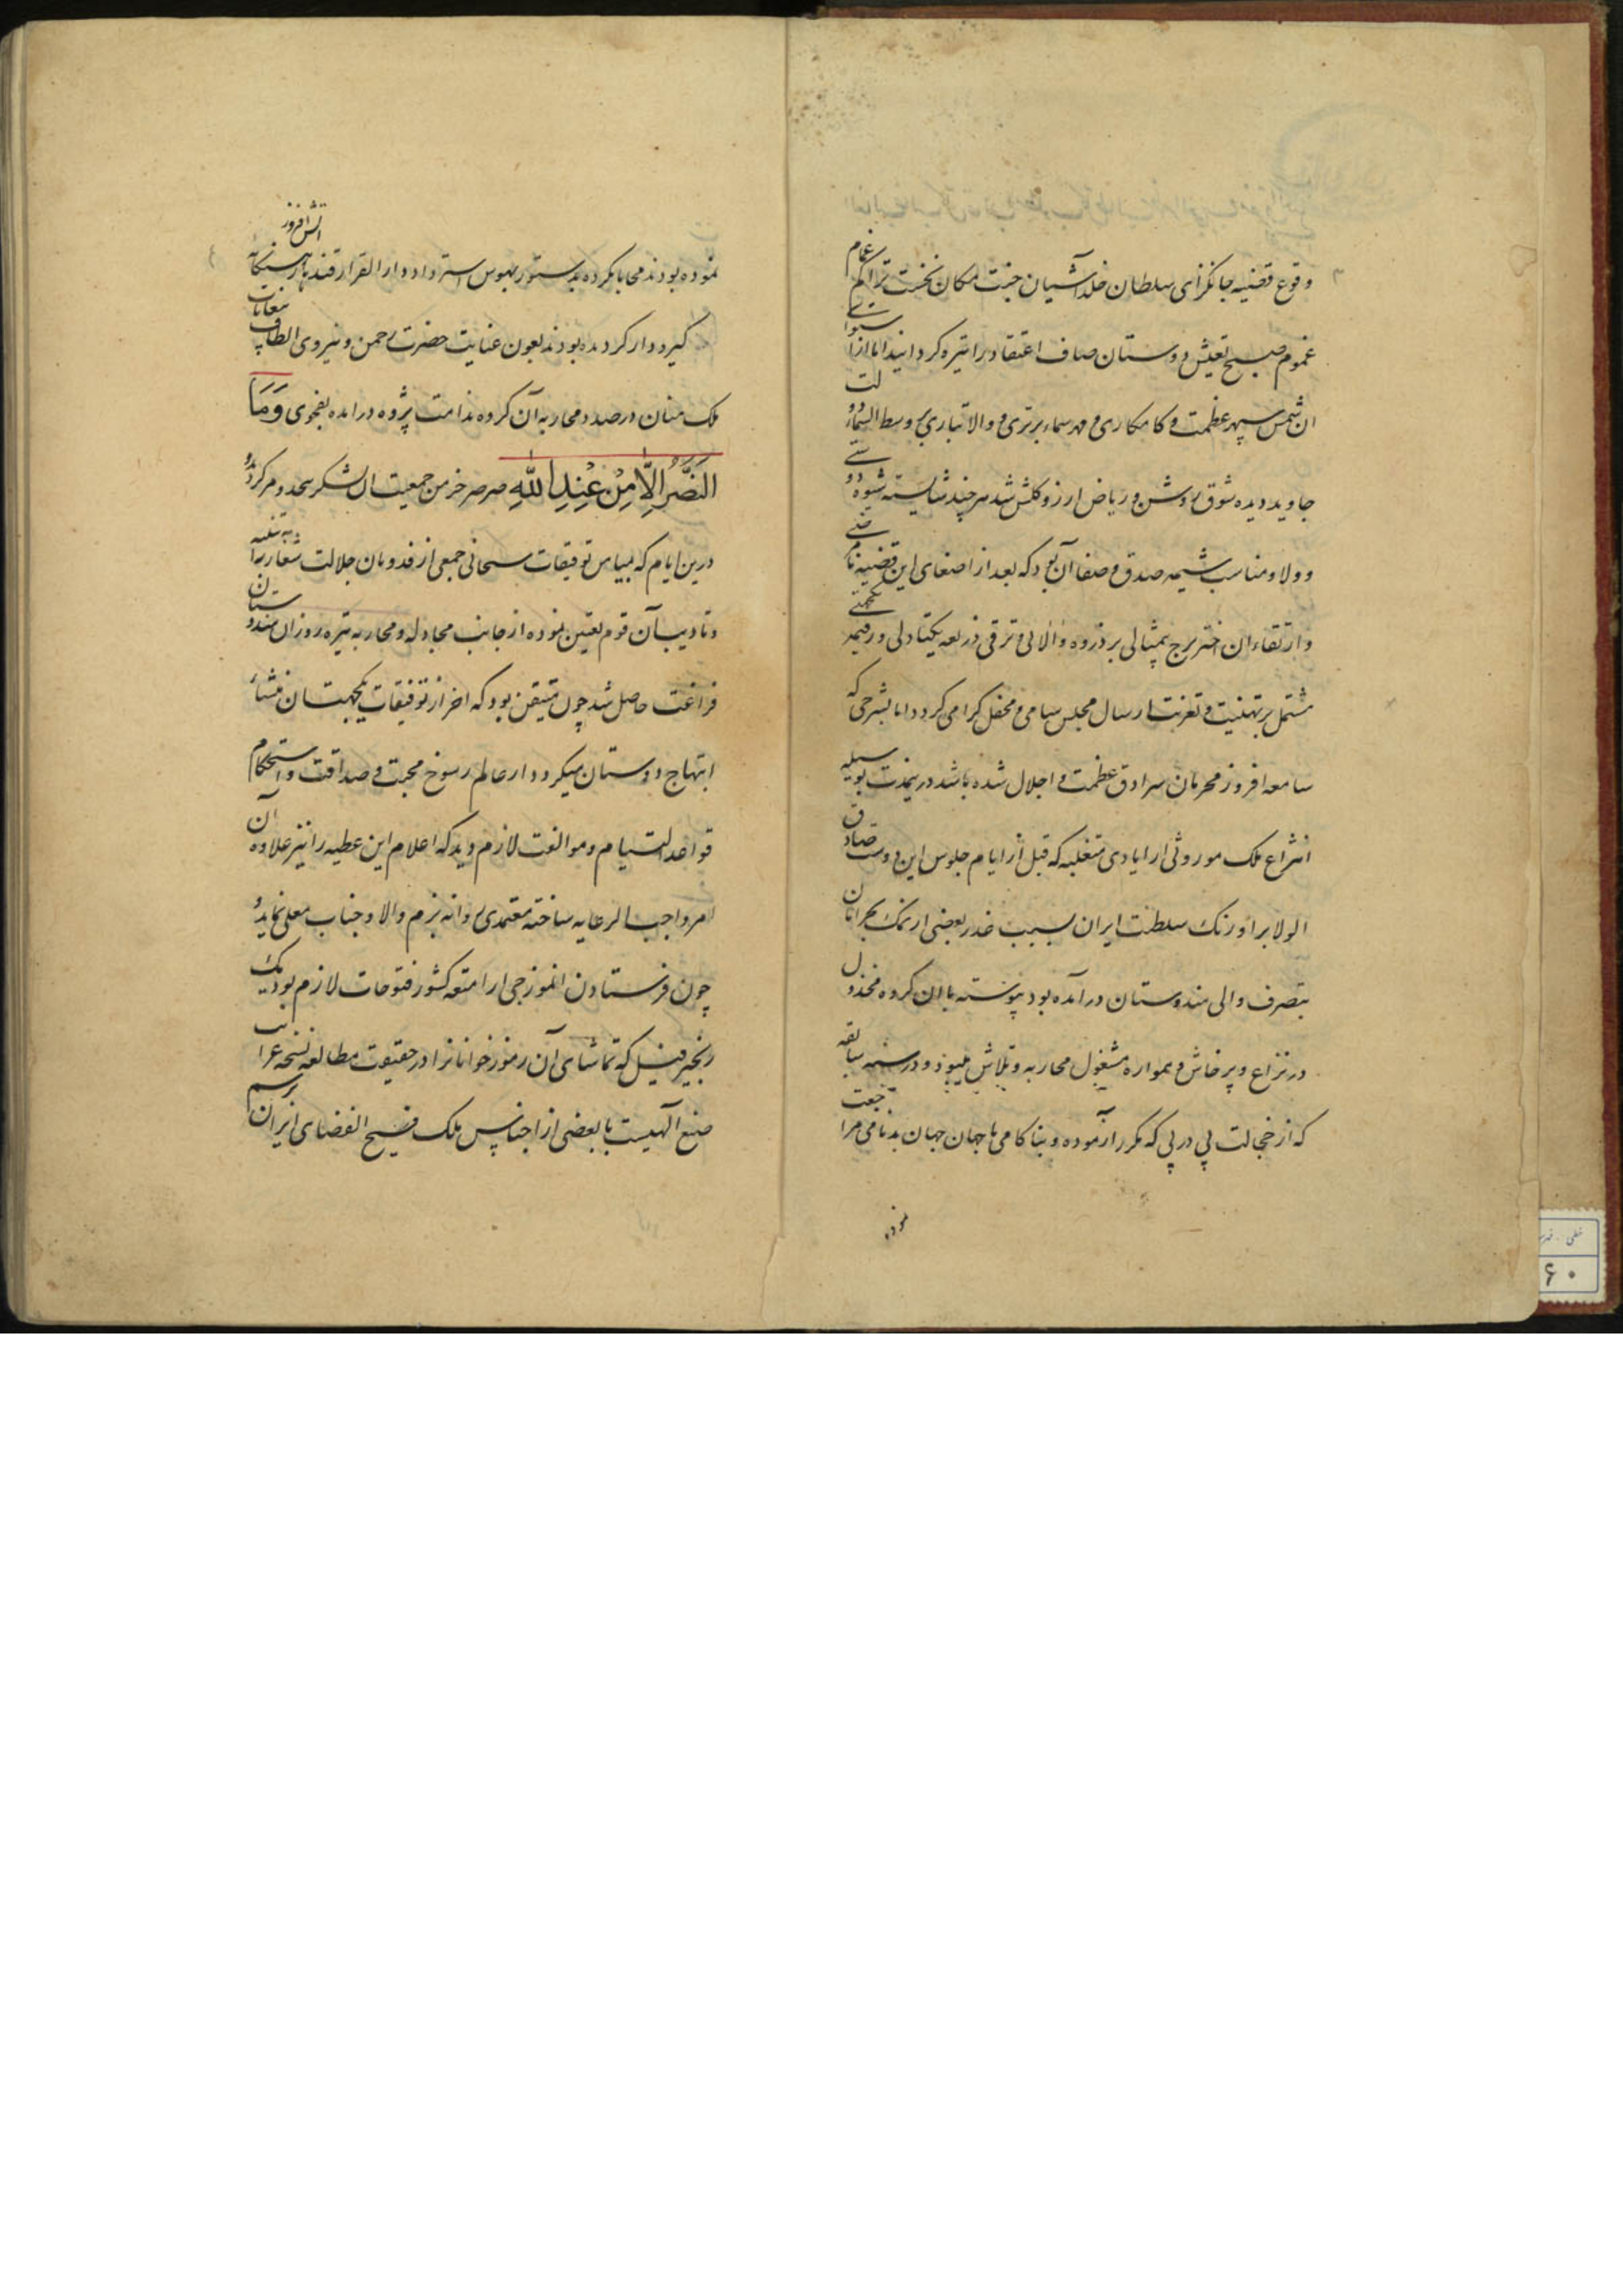 وقوع قضیه جانگزای سلطان خلد آشیان جنت مکان نخست تراکم غمام
غموم صبح تعیش دوستان صاف اعتقاد را تیره گردانید اما از استوای
ان شمس سپهر عظمت و کامکاری و مهر سماء برتری و والاتباری بر وسط السماء دولت
جاوید دیده شوق روشن و ریاض ارزو گلشن شد هر چند شایسته شیوه دوستی
و ولا و مناسب شیمه صدق و صفا آن بود که بعد از اصغای این قضیه نامرضی
و ارتقاء ان اختر برج بیمثالی بر ذروه والائی و ترقی ذریعه یکتادلی و رقیمه یکجهتی
مشتمل بر تهنیت و تعزیت ارسال مجلس سامی و محفل گرامی گردد اما بشرحی که
سامعه افروز محرمان سرادق عظمت و اجلال شده باشد درینمدت بوسیله
انتزاع ملک موروثی از ایادی متغلبه که قبل از ایام جلوس این دوست صادق
الولا بر اورنک سلطنت ایران بسبب غدر بعضی از نمک بحرامان
بتصرف والی هندوستان درآمده بود پیوسته با ان گروه مخذول
در نزاع و پرخاش و همواره مشغول محاربه و تلاش میبود و در سنه سابقه
که از خجالت پی در پی که مکرر آزموده و بناکامی با جهان جهان بدنامی مراجعت
نموده
نموده بودند محابا نکرده بدستور بهوس استرداد دارالقرار قندهار هنگامه
آتش افروز
گیر و دار گردیده بودند بعون عنایت حضرت رحمن و نیروی الطاف بیغایات
ملک منان در صدد محاربه آن گروه ندامت پژوه درامده بفحوی وَمَا
النَّصْرُ اِلَّا مِنْ عِنْدِ اللّٰهِ صرصر خرمن جمعیت ان لشکر بیحد و مر گردید
درین ایام که بمیامن توفیقات سبحانی جمعی از فدویان جلالت شعار را به تنبیه
و تادیب آن قوم تعیین نموده از جانب مجادله و محاربه تیره روزان هندوستان
فراغت حاصل شد چون متیقن بود که احراز توفیقات یکجهتان منشاء
ابتهاج دوستان میگردد از عالم رسوخ محبت و صداقت و استحکام
قواعد التیام و موالفت لازم دید که اعلام این عطیه را نیز علاوه آن
امر واجب الرعایه ساخته معتمدی روانه بزم والا و جناب معلی نماید و
چون فرستادن انموزجی از امتعه کشور فتوحات لازم بود یک
زنجیر فیل که تماشای آن رموز خوانان را در حقیقت مطالعه نسخه غرایب
صنع الهیست با بعضی از اجناس ملک فسیح الفضای ایران برسم